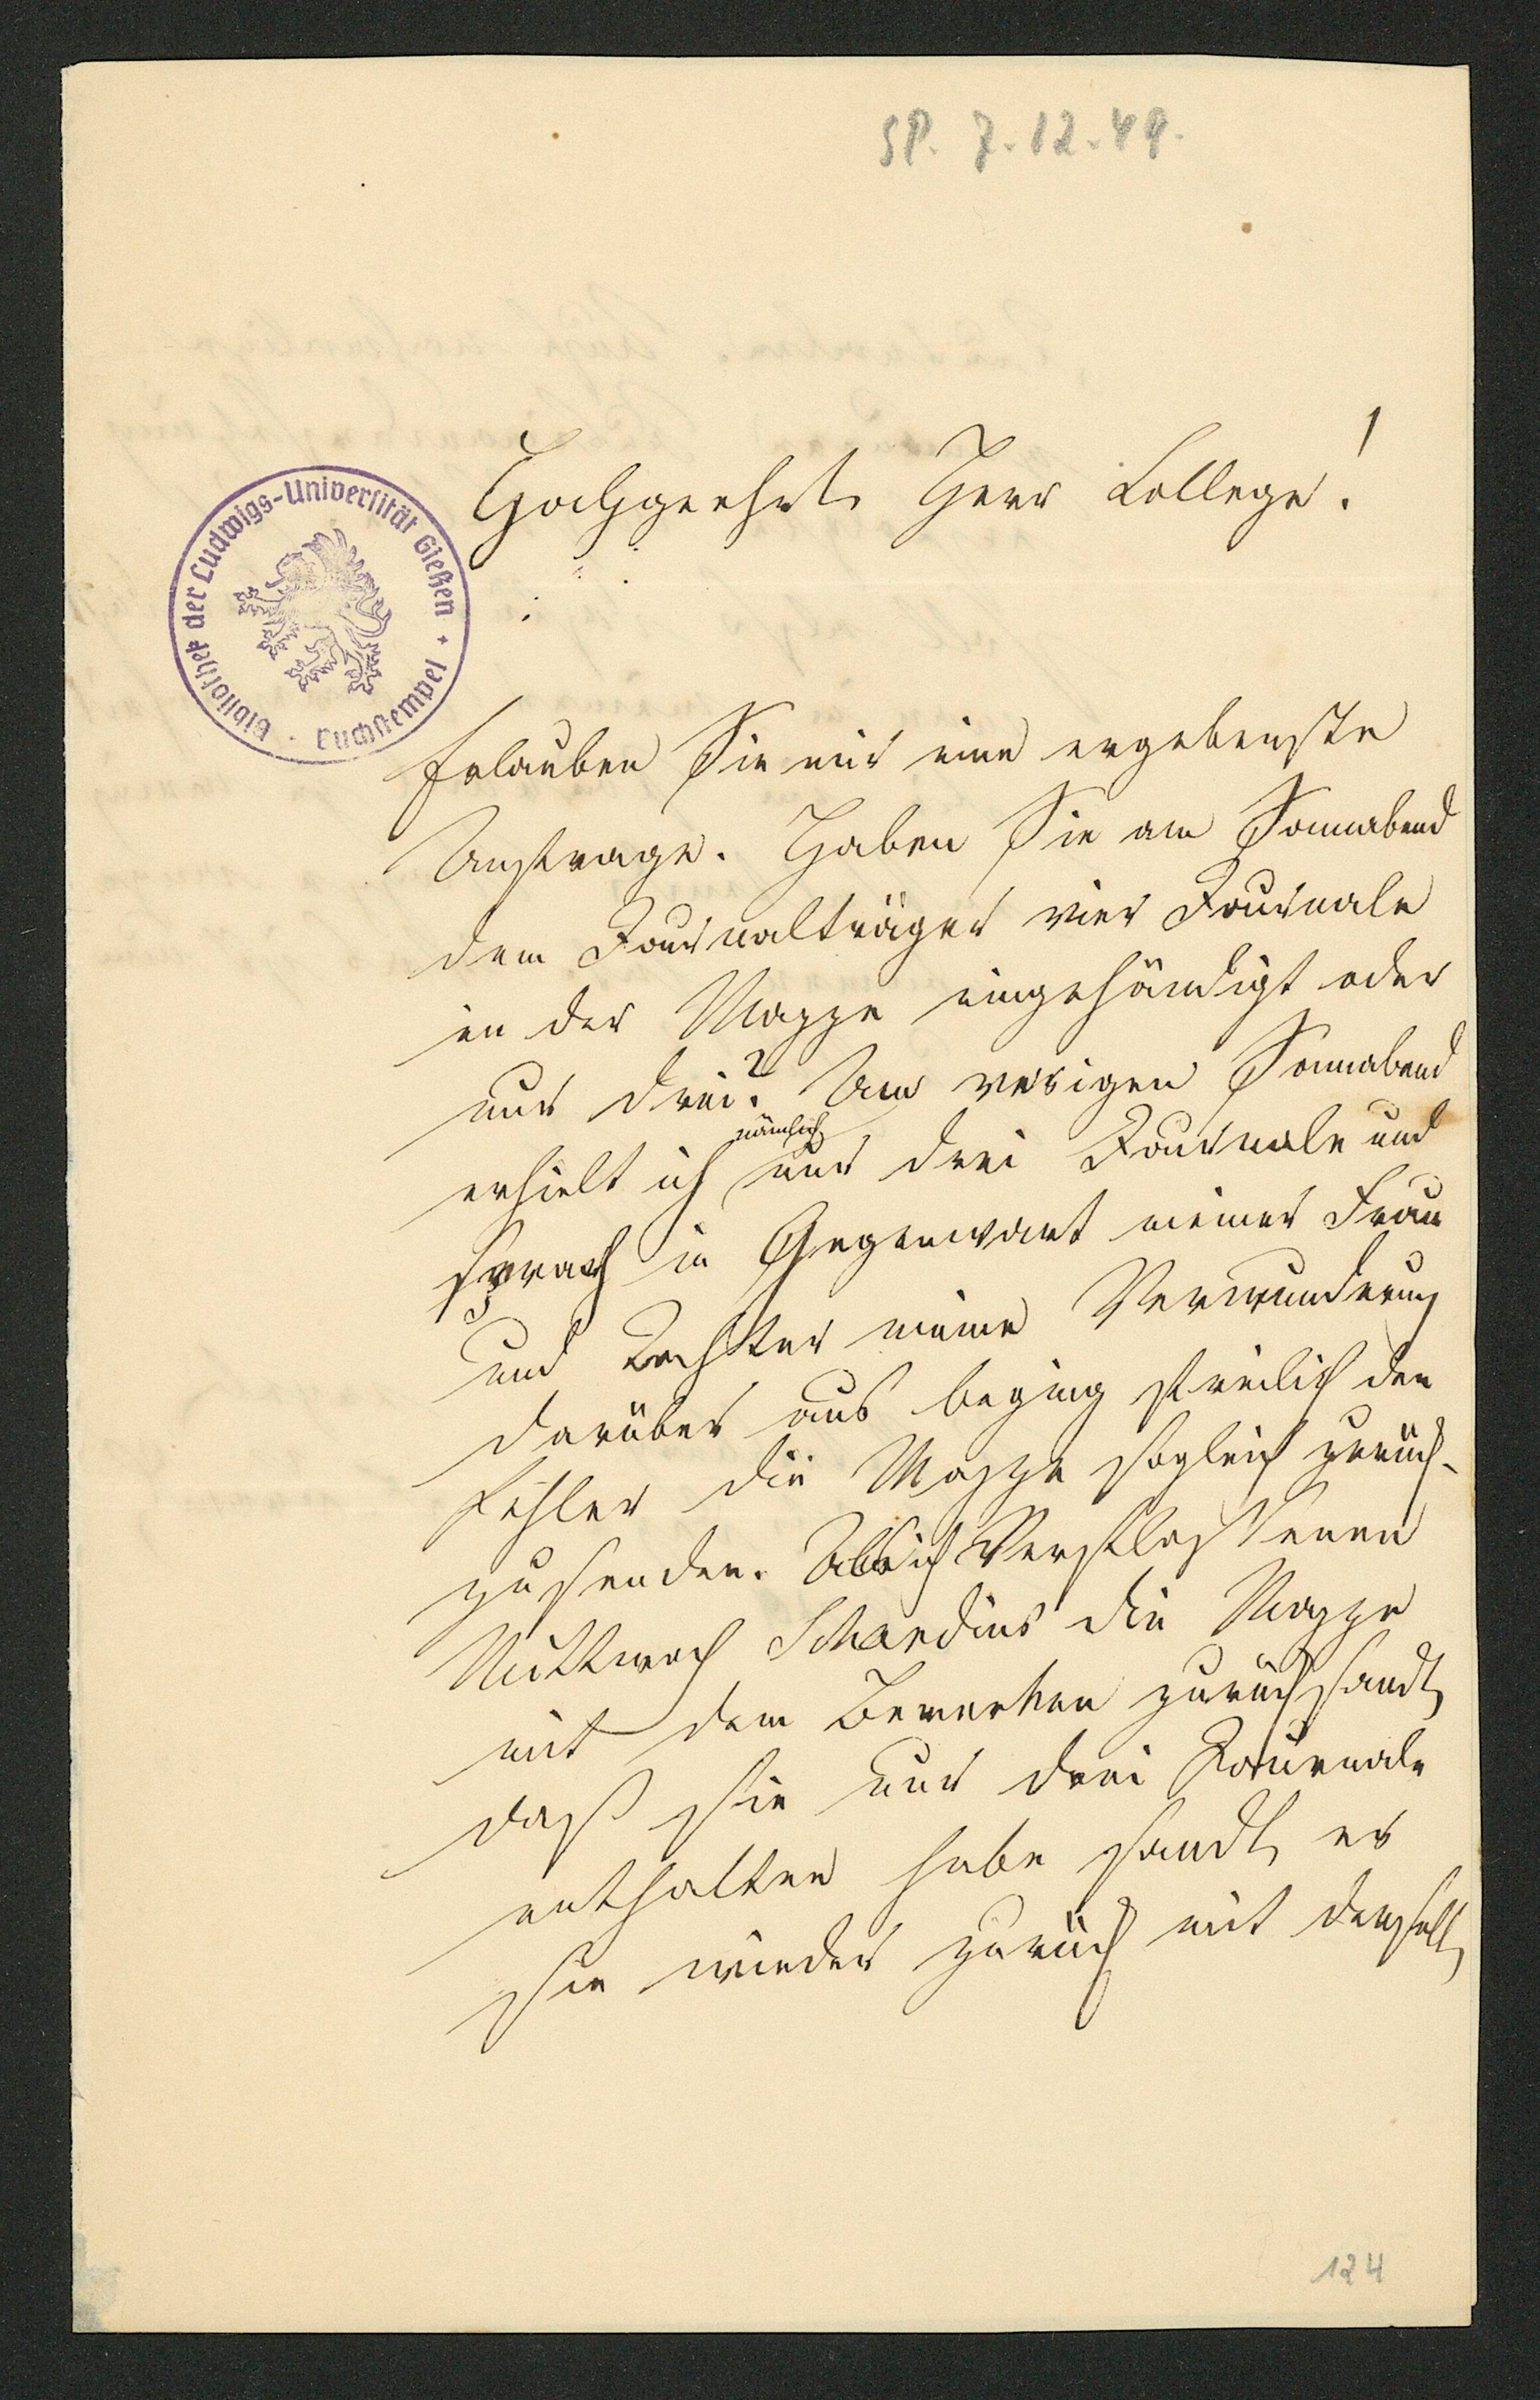 SP. 7.12.49.
Hochgeehrter Herr College!
Bibliothek der Ludwigs-Universität Gießen * Buchstempel *
Erlauben Sie mir eine ergebenste
Anfrage. Haben Sie am Sonnabend
dem Journalträger vier Journale
in der Mappe eingehändigt oder
nur drei? Am vorigen Sonnabend
nämlich
erhielt ich nur drei Journale und
sprach in Gegenwart meiner Frau
und Tochter meine Verwunderung
darüber aus beging freilich den
Fehler die Mappe sogleich zurück-
zusenden. Als ich Verflossenen
Mittwoch die Mappe
mit dem Bemerken zurücksandte
daß sie nur drei Journale
enthalten habe sandte er
sie wieder zurück mit
124